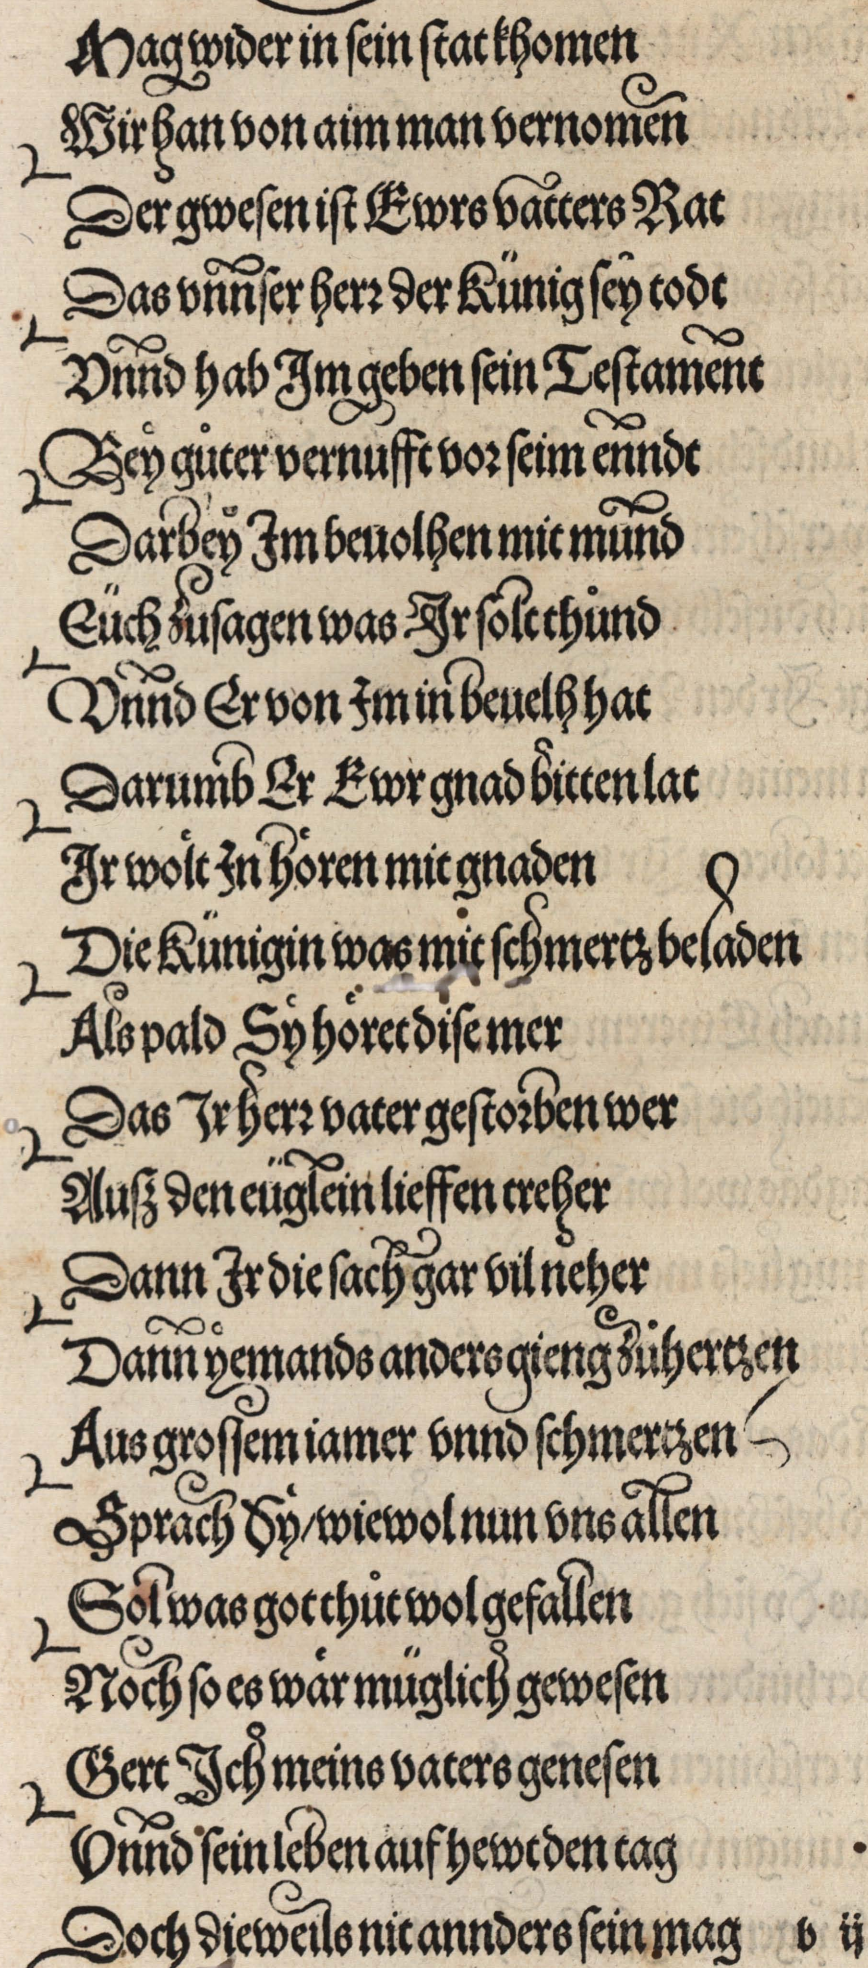 Mag wider in sein stat khomen
Wir han von aim man vernomen
Der gwesen ist Ewrs vatters Rat
Das vnnser herr der Künig sey todt
Vnnd hab Im geben sein Testament
Bey guͦter vernufft vor seim enndt
Darbey Im beuolhen mit mund
Eüch zusagen was Ir solt thuͦnd
Vnnd Er von Im in beuelh hat
Darumb Er Ewr gnad bitten lat
Ir woͤlt In hoͤren mit gnaden
Die Künigin was mit schmertz beladen
Als pald Sy hoͤret dise mer
Das Ir herr vater gestorben wer
Ausz den eüglein lieffen treher
Dann Ir die sach gar vil neher
Dann yemands anders gieng zuͦ hertzen
Aus grossem iamer vnnd schmertzen
Sprach Sy / wiewol nun vns allen
Sol was got thuͦt wol gefallen
Noch so es waͤr müglich gewesen
Gert Ich meins vaters genesen
Vnnd sein leben auf hewt den tag
Doch dieweils nit annders sein mag b ij